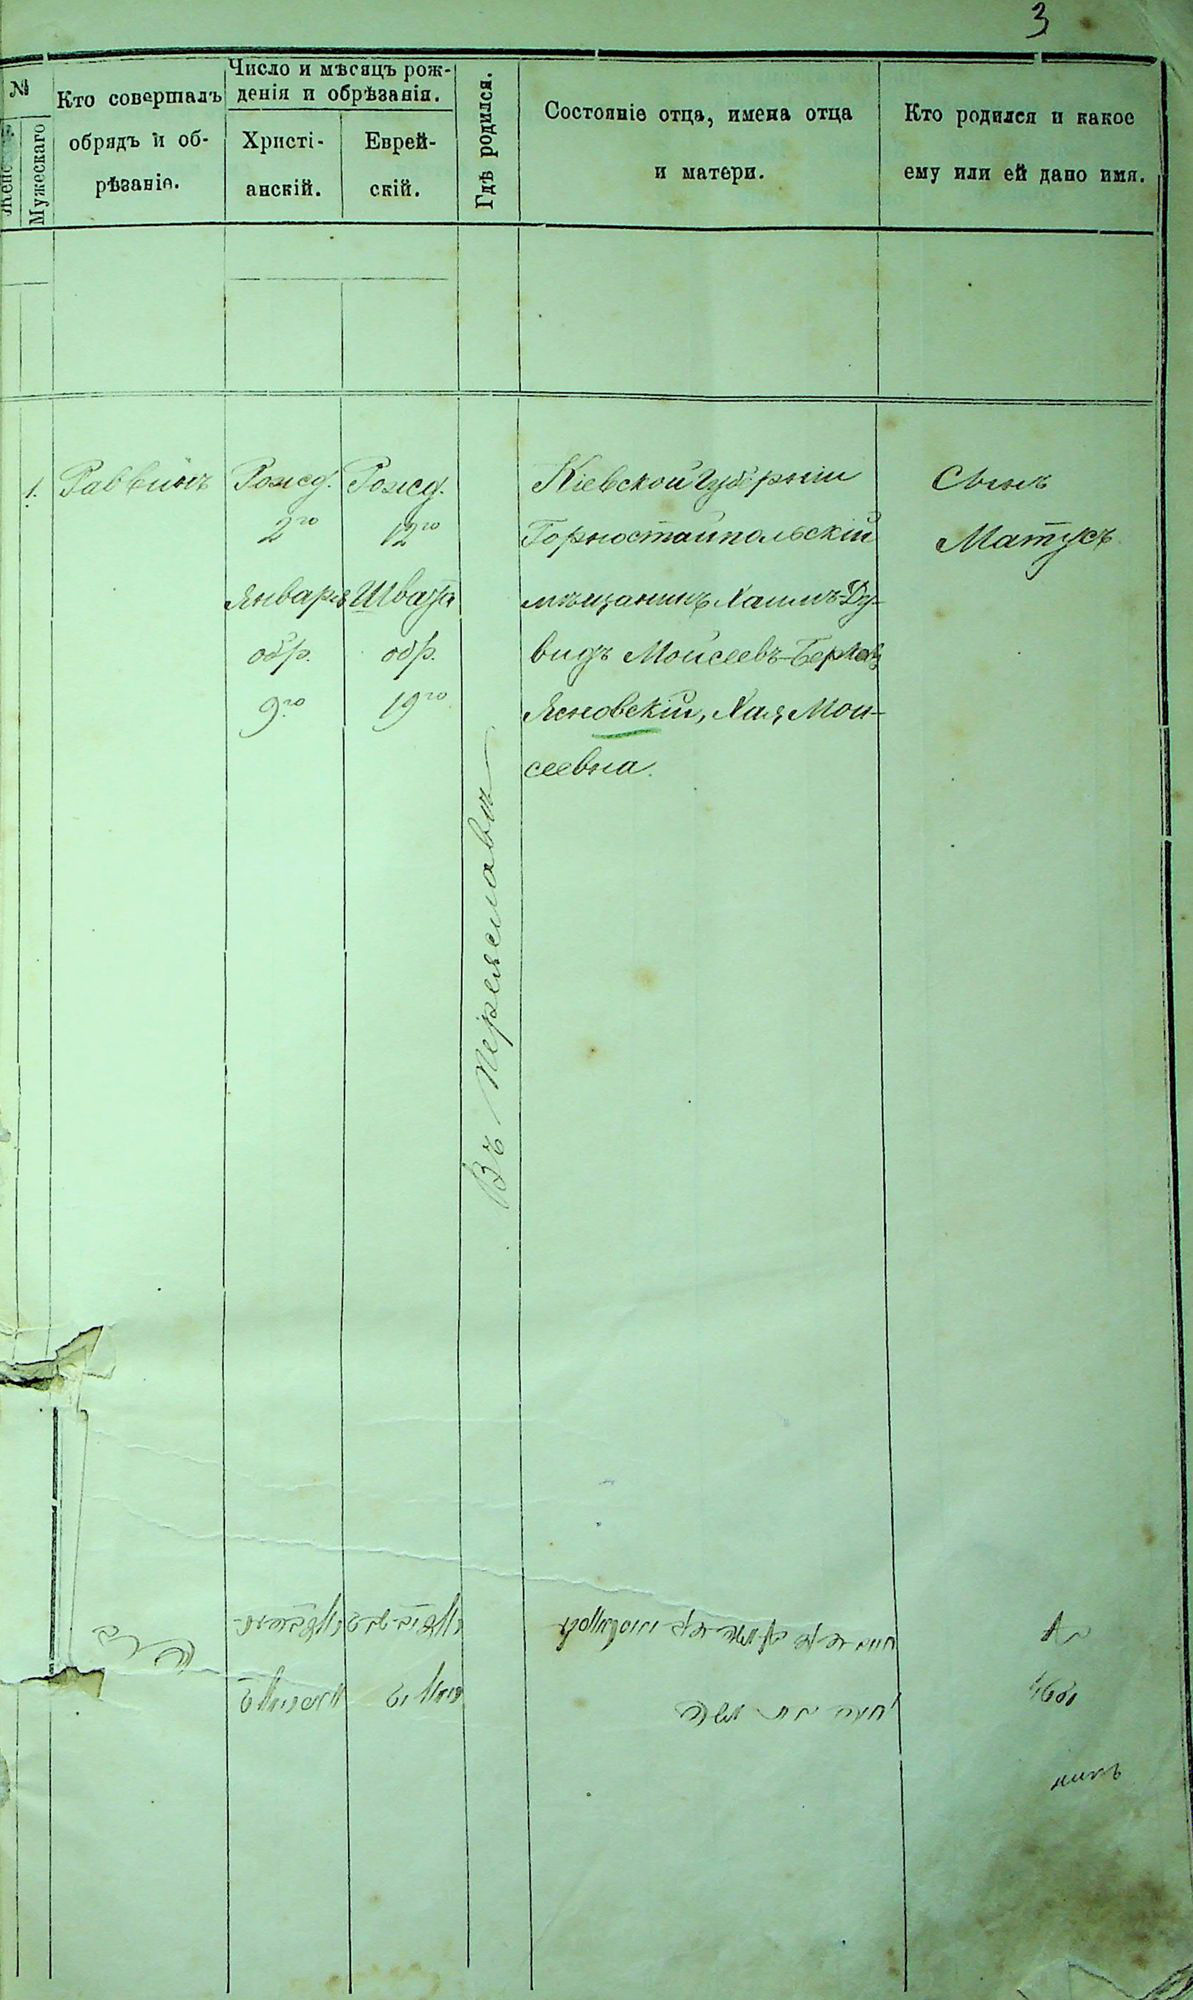 3
№
Женс
Мужескаго
Кто совершалъ
обрядъ и об-
рѣзаніе.
Число и мѣсяцъ рож-
денія и обрѣзанія.
Христі-
анскій.
Еврей-
скій.
Гдѣ родился.
Состояніе отца, имена отца
и матери.
Кто родился и какое
ему или ей дано имя.
1.
Раввинъ
Рожд.
2го
Января
обр.
9го
Рожд.
12го
Швата
обр.
19го
Въ Переяславѣ
Кіевской Губерніи
Горностайпольскій
мѣщанинъ Хаимъ-Ду-
видъ Моисеевъ-Берковъ
Ясновскій, Хая Мои-
сеевна.
Сынъ
Матусъ